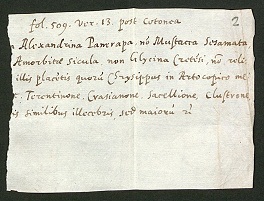 fol. 509. Ver. 13. post Cotonea
2
Alexandrina Pancrapa, nō Mustacea Sesamata
Amorbitæ Sicula, non Glycina Cretēsi, nō reli
illis placētis quorū Chrysippus in Artocopico me
Terentinone, Crasianone, Sacellione, Clustrone
is similibus illecebris, sed maiorū